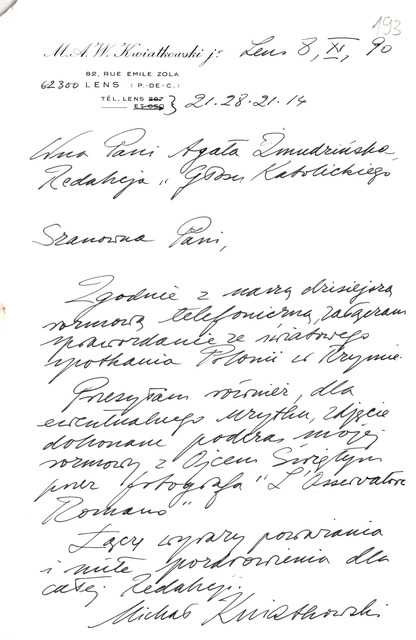 193
M. A. W. Kwiatkowski jr
Lens 8, XI, 90
82, RUE EMILE ZOLA
62300 LENS (P.-DE-C.)
TÉL. LENS 21.28.21.14
Wna Pani Agata Żmudzińska
Redakcja „Głosu Katolickiego
Szanowna Pani,
Zgodnie z naszą dzisiejszą
rozmową telefoniczną, załączam
sprawozdanie ze światowego
spotkania Polonii w Rzymie.
Przesyłam również, dla
ewentualnego użytku, zdjęcie
dokonane podczas mojej
rozmowy z Ojcem Świętym
przez fotografa "L'Osservatore
Romano"
Łączę wyrazy poważania
i miłe pozdrowienia dla
całej Redakcji.
Michał Kwiatkowski